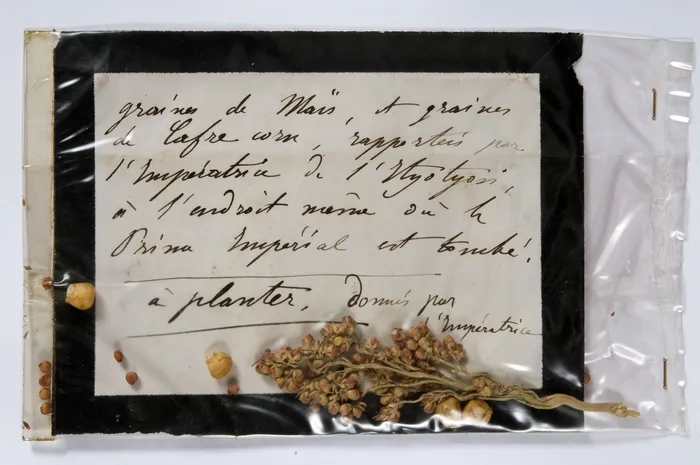 graines de Maïs, et graines
de Cafre corn, rapportés par
l'Impératrice de l'Ityotyosi,
à l'endroit même où le
Prince Impérial est tombé!
à planter, donnés par
l'Impératrice